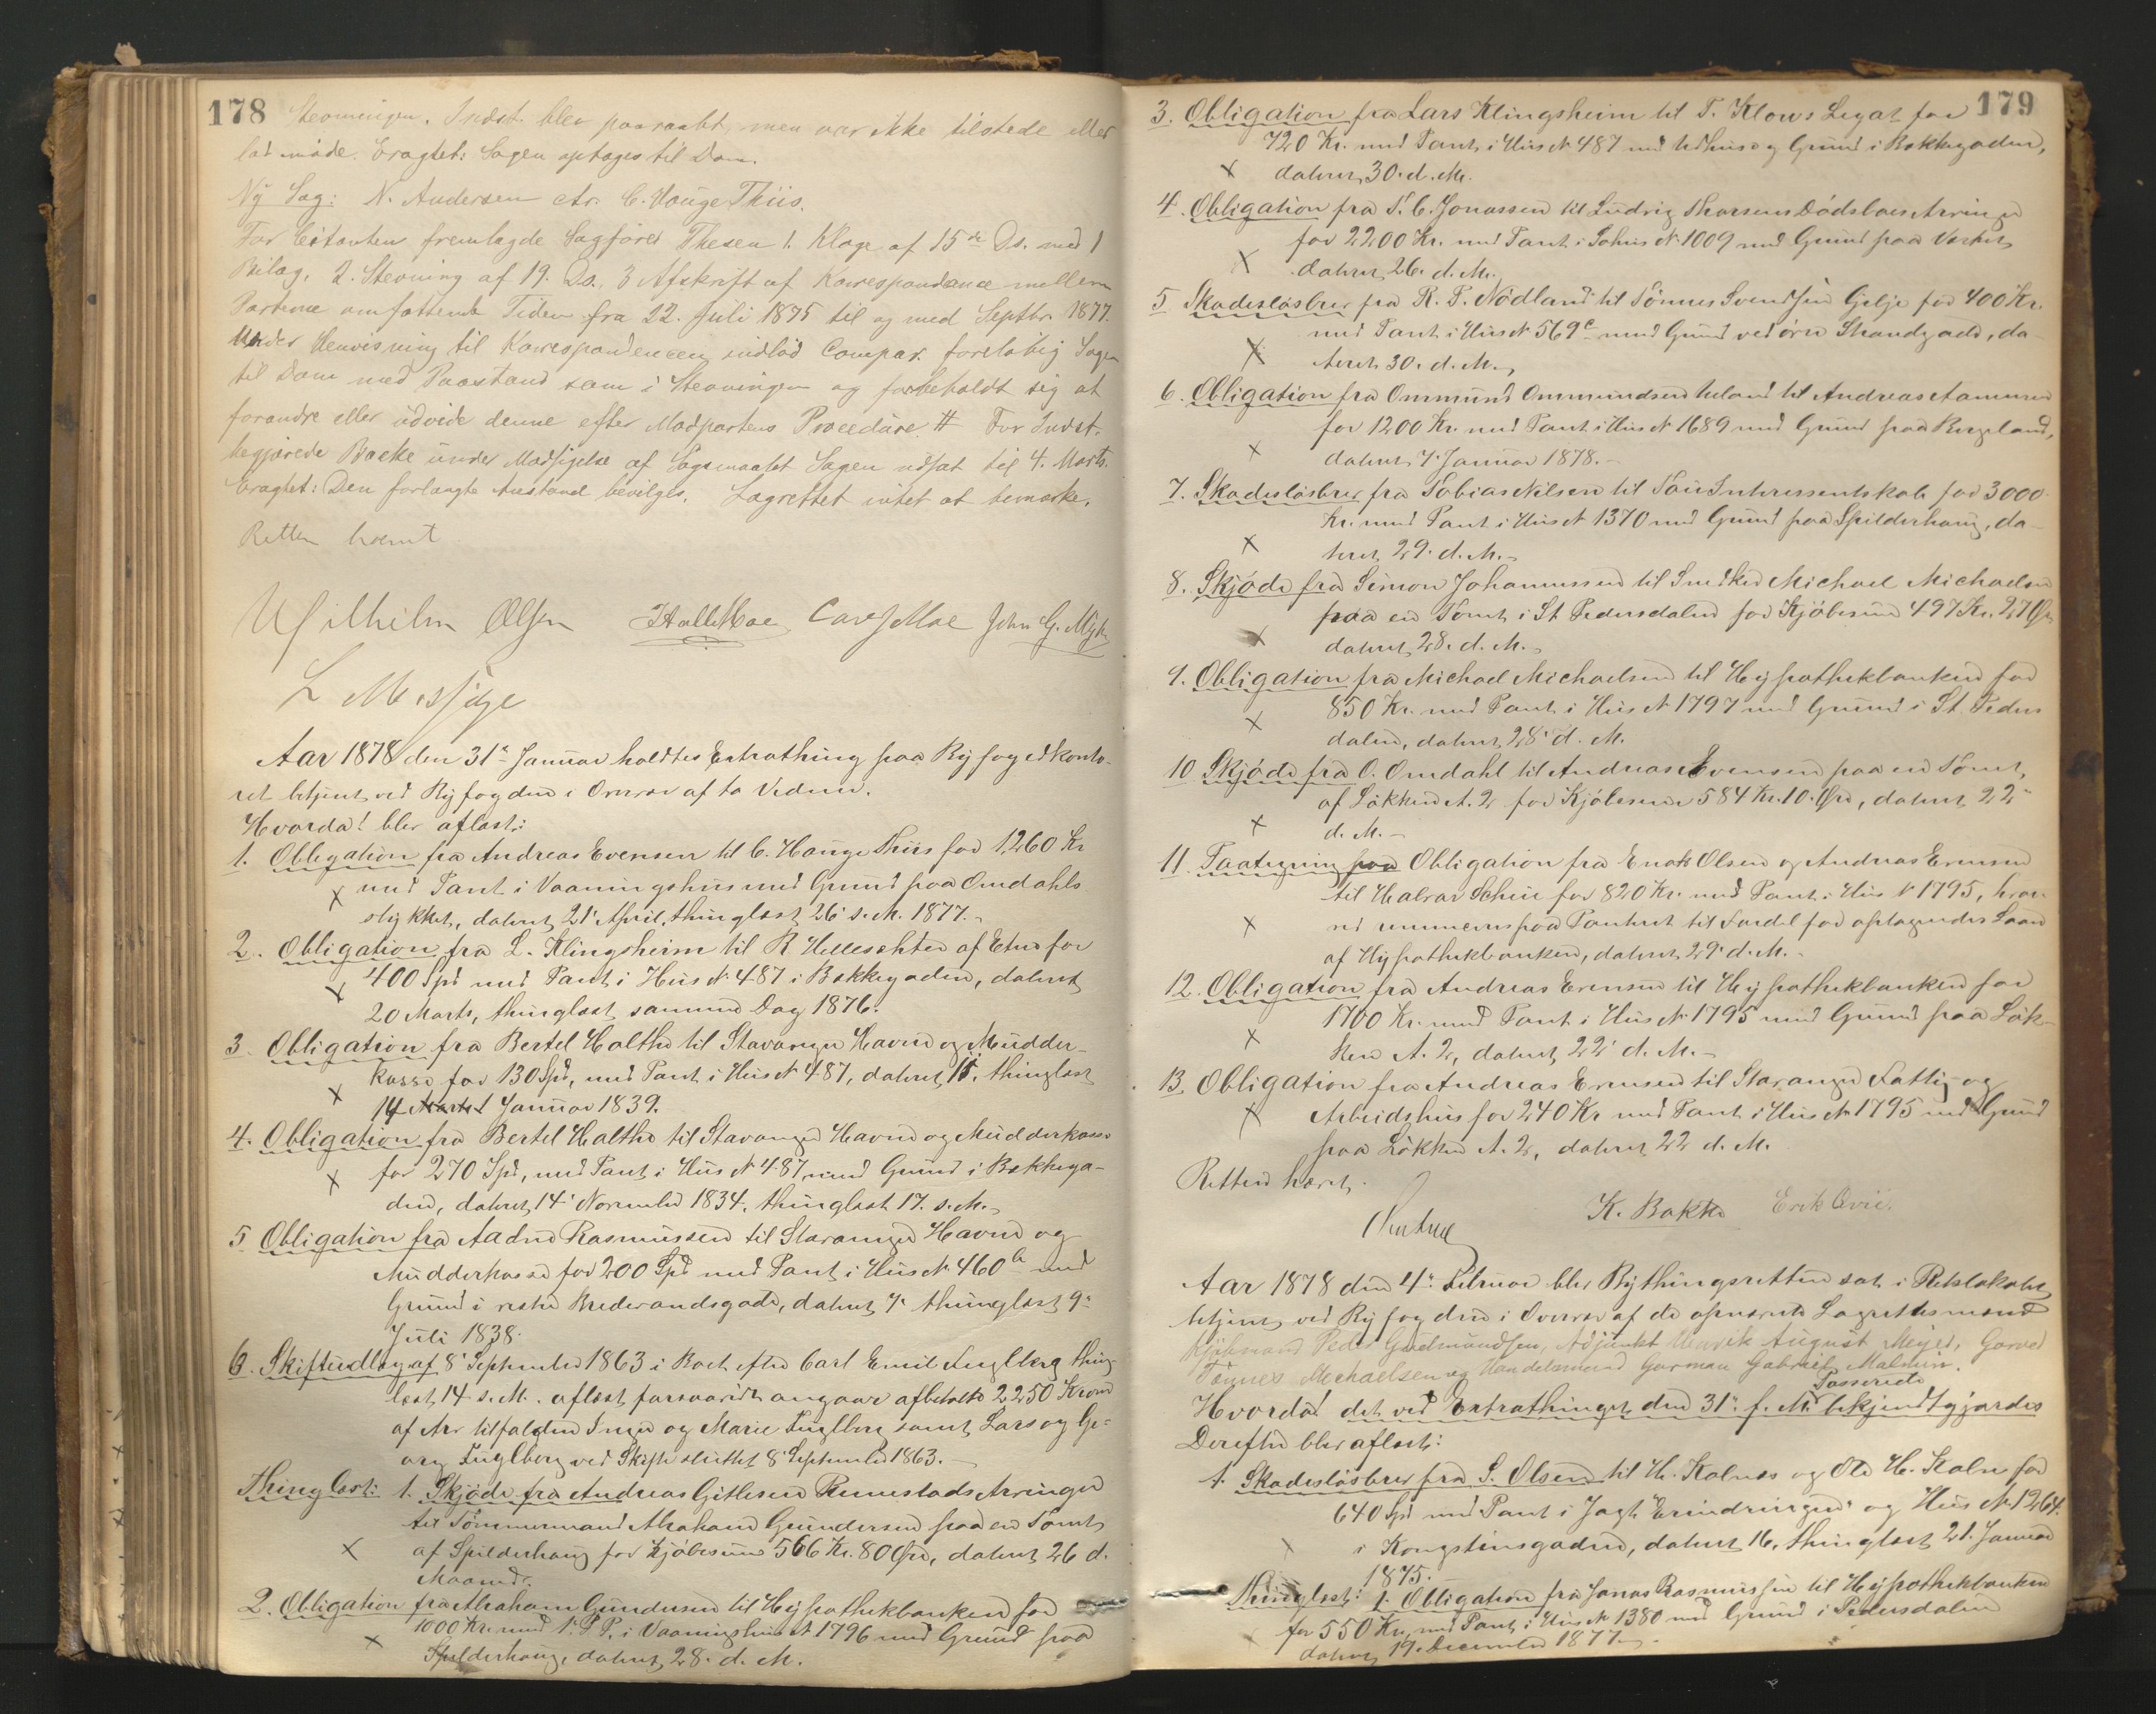 178
Stevningen. Indst. blev paaraabt, men var ikke tilstede eller
lod møde. Eragtet: Sagen optages til Dom.
Ny Sag: N. Andersen ctr. C. Hauge Thiis.
For Citanten fremlagde Sagfører Thesen 1. Klage af 15de Ds. med 1
Bilag, 2. Stevning af 19. Ds., 3 Afskrift af Korrespondance mellem
Parterne omfattende Tiden fra 22. Juli 1875 til og med Septbr. 1877.
Under Henvisning til Korrespondencen indlod Compar. foreløbig Sagen
til Dom med Paastand som i Stevningen og forbeholdt sig at
forandre eller udvide denne efter Modpartens Procedure. # For Indst.
begjærede Backe under Modsigelse af Søgsmaalet Sagen udsat til 4. Marts.
Eragtet: Den forlangte Anstand bevilges. Lagrettet intet at bemærke.
Retten hævet
Wilhelm Olsen HalleMoe John G.
L
Aar 1878 den 31te Januar holdtes Extrathing paa Byfogedkonto-
ret betjent ved Byfogden i Overvær af to Vidner.
Hvorda! blev aflæst:
1. Obligation fra Andreas Evensen til C. Hauge Thiis for 1260 Kr
x med Pant i Vaaningshus med Grund paa Omdahls
stykket, dateret 21' April, thinglæst 26' s. M. 1877.
2. Obligation fra L. Klingsheim til R af Etne for
x 400 Spd med Pant i Hus N. 487 i Bakkegaden, dateret
20 Marts, thinglæst samme Dag 1876.
3. Obligation fra Bertel Holthe til Stavanger Havne og Mudder-
x kasse for 130 Spd, med Pant i Hus N 487, dateret, thinglæst
14 Januar 1839.
4. Obligation fra Bertel Holthe til Stavanger Havne og Mudderkasse
x for 270 Spd, med Pant i Hus N 487 med Grund i Bakkega-
den, dateret 14' November 1834, thinglæst 17. s. M.
5 Obligation fra Aadne Rasmussen til Stavanger Havne og
Mudderkasse for 200 Spd med Pant i Hus N. 460 b med
Grund i vestre Brederandsgade, dateret 7. thinglæst 9.
Juli 1838.
6. Skifteudlæg af 8' September 1863 i Boet efter Carl Emil Fuglberg thing-
læst 14 s. M. aflæst forsaavidt angaar afbetalte 2250 Kroner
af Arv tilfalden Inger og Marie Fuglberg samt Lars og Ge-
org Fuglberg ved Skifte sluttet 8' September 1863.
Thinglæst: 1. Skjøde fra Andreas Gitlesen Rennestads Arvinger
til Tømmermand Abraham Gundersen paa en Tomt
x af Spilderhaug for Kjøbesum 566 Kr. 80 Øre, dateret 26 d.
Maaned.
2. Obligation fra Abraham Gundersen til Hypothekbanken for
1000 Kr. med 1. P. P. i Vaaningshus N 1796 med Grund paa
x Spilderhaug, dateret 28. d. M.
179
3. Obligation fra Lars Klingsheim til T. Klows Legat for
720 Kr. med Pant i Hus N 487 med Udhus og Grund i Bakkegaden,
x dateret 30. d. M.
4. Obligation fra T. C. Jonassen til Ludvig Thorsens Dødsboes Arvinger
for 2200 Kr. med Pant i Søhus N. 1009 med Grund paa Verket,
x dateret 26. d. M.
5 Skadesløsbrev fra R. T. Nødland til Tønnes Svendsen Gilje for 400 Kr.
med Pant i Hus N 569 c med Grund ved øvre Strandgade, da-
x teret 30. d. M.
6. Obligation fra Ommund Ommundsen til Andreas Aamunsen
for 1200 Kr. med Pant i Hus N 1689 med Grund paa Bergeland,
x dateret 7. Januar 1878.
7. Skadesløsbrev fra Tobias Nilsen til Tou Intressentskab for 3000
Kr. med Pant i Hus N 1370 med Grund paa Spilderhaug, da-
x teret 29. d. M.
8. Skjøde fra Simon Johannessen til Snedker Michael Michaelsen
paa en Tomt i St Pedersdalen for Kjøbesum 497 Kr. 27 Øre
x dateret 28. d. M.
9. Obligation fra Michael Michaelsen til Hypothekbanken for
850 Kr. med Pant i Hus N 1797 med Grund i St. Peders
x dalen, dateret 28' d. M.
10 Skjøde fra O. Omdahl til Andreas Evensen paa en Tomt
af Løkken N. 2 for Kjøbesum 584 Kr. 10 Øre, dateret 22"
x d. M.
11. Paategning paa Obligation fra Enok Olsen og Andreas Evensen
til Halvar Schie for 820 Kr. med Pant i Hus N 1795, hvor-
x ved rømmes paa Pantet til Fordel for optagendes Laan
af Hypothekbanken, dateret 29' d. M.
12. Obligation fra Andreas Evensen til Hypothekbanken for
1700 Kr. med Pant i Hus N. 1795 med Grund paa Løk-
x ken N. 2, dateret 22' d. M.
13. Obligation fra Andreas Evensen til Stavanger Fattig- og
x Arbeidshus for 240 Kr med Pant i Hus N 1795 med Grund
paa Løkken N. 2, dateret 22 d. M.
Retten hævet.
K. Bakke Erik
Aar 1878 den 4" Februar blev Bythingsretten sat i Retslokalet
betjent ved Byfogden i Overvær af de opnævnte Lagrettesmænd
Kjøbmand Peder Gudmundsen, Adjunkt Henrik August Meyer, Garver
Tønnes Michaelsen og Handelsmand Gorman Gabriel Malmin.
Passerede
Hvorda! det ved Extrathinget den 31" f. M. bekjendtgjordes
Derefter blev aflæst:
1. Skadesløsbrev fra S. Olsen til H. Kalnes og Ole H. Kaln for
640 Spd med Pant i Jagt "Erindringen" og Hus N. 1264
x i Kongstensgaden, dateret 16, thinglæst 21. Januar
1875.
Thinglæst: 1. Obligation fra Jonas Rasmussen til Hypothekbanken
for 550 Kr. med Pant i Hus N 1380 med Grund i Pedersdalen
x dateret 19. December 1877.